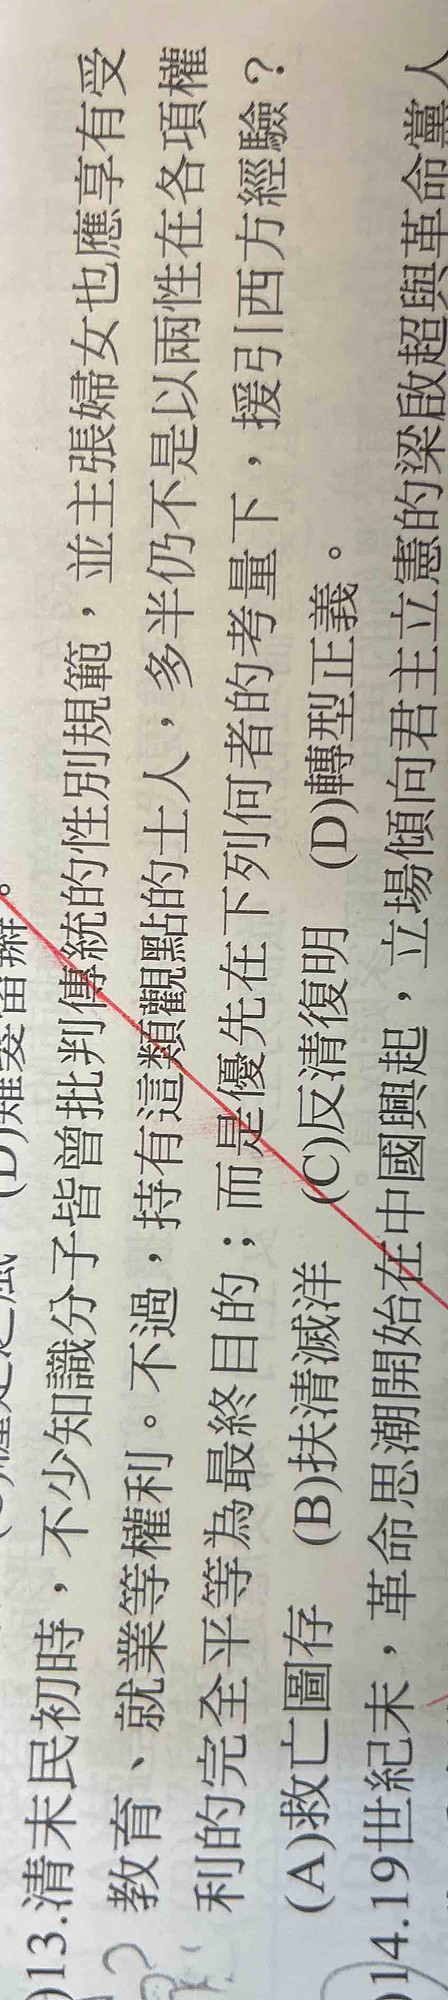 (D)雞婆留辮。
)13.清末民初時，不少知識分子皆曾批判傳統的性別規範，並主張婦女也應享有受
教育、就業等權利。不過，持有這類觀點的士人，多半仍不是以兩性在各項權
利的完全平等為最終目的；而是優先在下列何者的考量下，援引西方經驗？
(A)救亡圖存　(B)扶清滅洋　(C)反清復明　(D)轉型正義。
)14.19世紀末，革命思潮開始在中國興起，立場傾向君主立憲的梁啟超與革命黨人